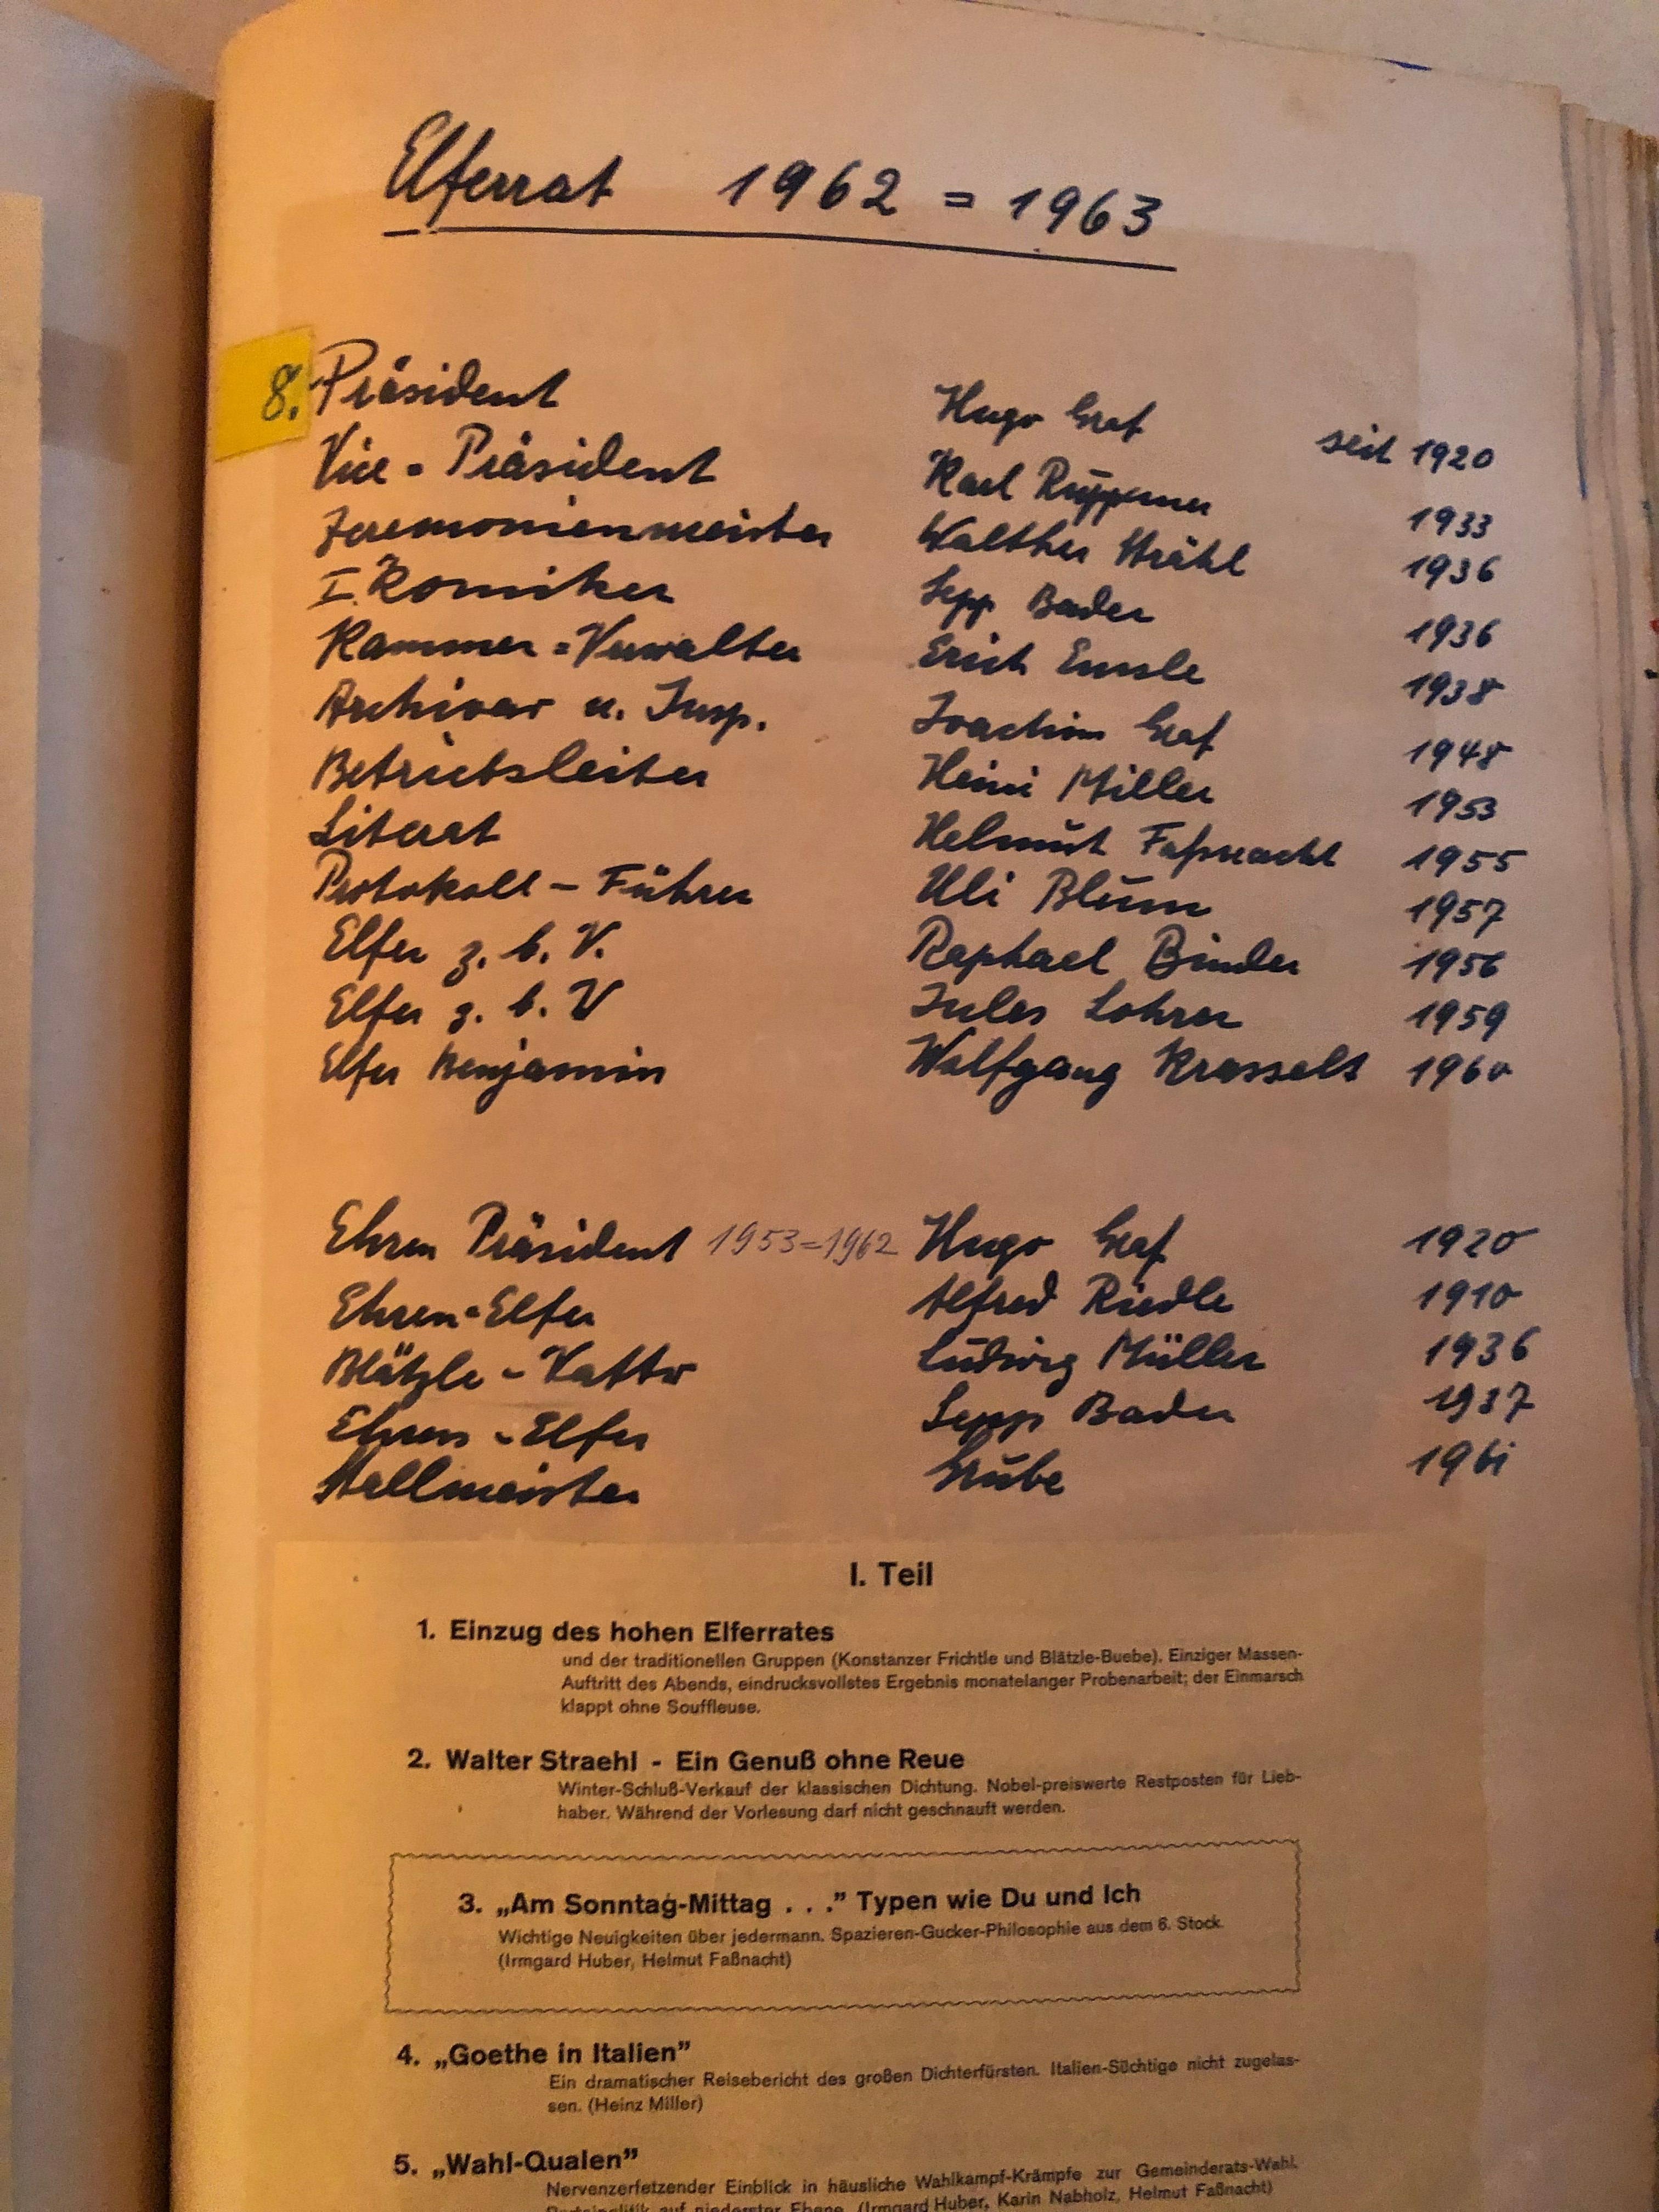 Elferrat 1962 = 1963
8. Präsident Hugo Graf seit 1920
Vice = Präsident Karl 1933
Zeremonienmeister Walther Strähl 1936
I. Komiker Sepp Bader 1936
Kammer = Verwalter Erich Emsle 1938
Archivar u. Insp. Joachim Graf 1948
Betriebsleiter Heini Miller 1953
Literat Helmut Faßnacht 1955
Protokoll - Führer Uli Blum 1957
Elfer z. b. V. Raphael Binder 1956
Elfer z. b. V Jules Lohrer 1959
Elfer Benjamin Wolfgang Krasselt 1960
Ehren Präsident 1953=1962 Hugo Graf 1920
Ehren=Elfer Alfred Riedle 1910
Blätzle - Vatter Ludwig Müller 1936
Ehren - Elfer Sepp Bader 1937
Stallmeister Grube 1961
I. Teil
1. Einzug des hohen Elferrates
und der traditionellen Gruppen (Konstanzer Frichtle und Blätzle-Buebe). Einziger Massen-
Auftritt des Abends, eindrucksvollstes Ergebnis monatelanger Probenarbeit; der Einmarsch
klappt ohne Souffleuse.
2. Walter Straehl - Ein Genuß ohne Reue
Winter-Schluß-Verkauf der klassischen Dichtung. Nobel-preiswerte Restposten für Lieb-
haber. Während der Vorlesung darf nicht geschnauft werden.
3. „Am Sonntag-Mittag . . .” Typen wie Du und Ich
Wichtige Neuigkeiten über jedermann. Spazieren-Gucker-Philosophie aus dem 6. Stock.
(Irmgard Huber, Helmut Faßnacht)
4. „Goethe in Italien”
Ein dramatischer Reisebericht des großen Dichterfürsten. Italien-Süchtige nicht zugelas-
sen. (Heinz Miller)
5. „Wahl-Qualen”
Nervenzerfetzender Einblick in häusliche Wahlkampf-Krämpfe zur Gemeinderats-Wahl.
Parteipolitik auf niederster Ebene. (Irmgard Huber, Karin Nabholz, Helmut Faßnacht)